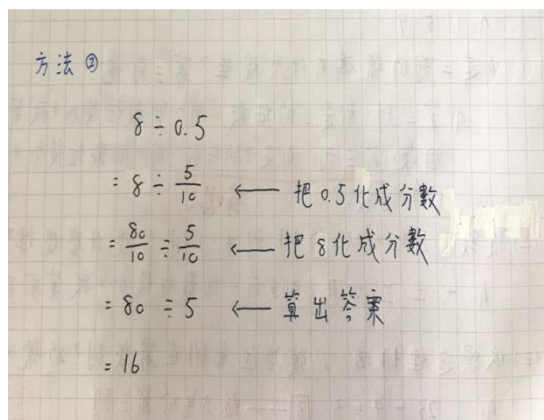 方法②
8 ÷ 0.5
= 8 ÷ 5/10 ← 把0.5化成分數
= 80/10 ÷ 5/10 ← 把8化成分數
= 80 ÷ 5 ← 算出答案
= 16